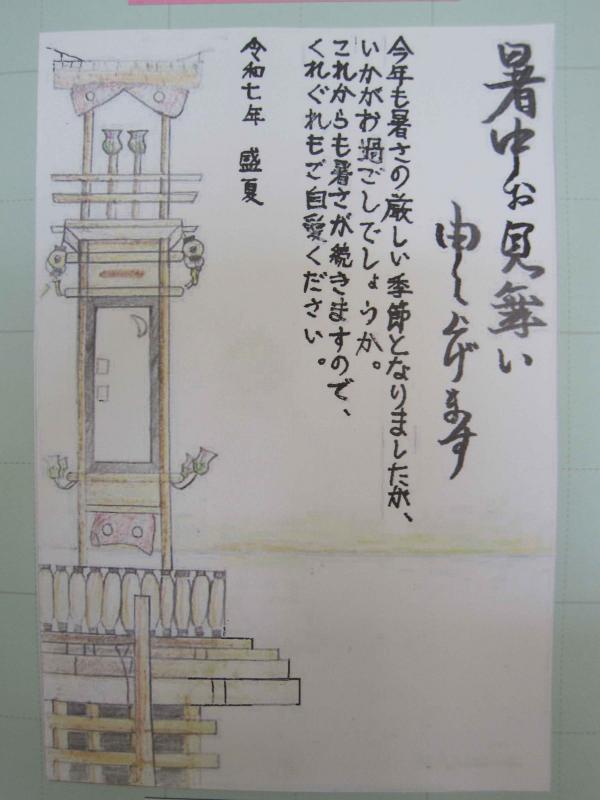 暑中お見舞い
申し上げます
今年も暑さの厳しい季節となりましたが、
いかがお過ごしでしょうか。
これからも暑さが続きますので、
くれぐれもご自愛ください。
令和七年 盛夏